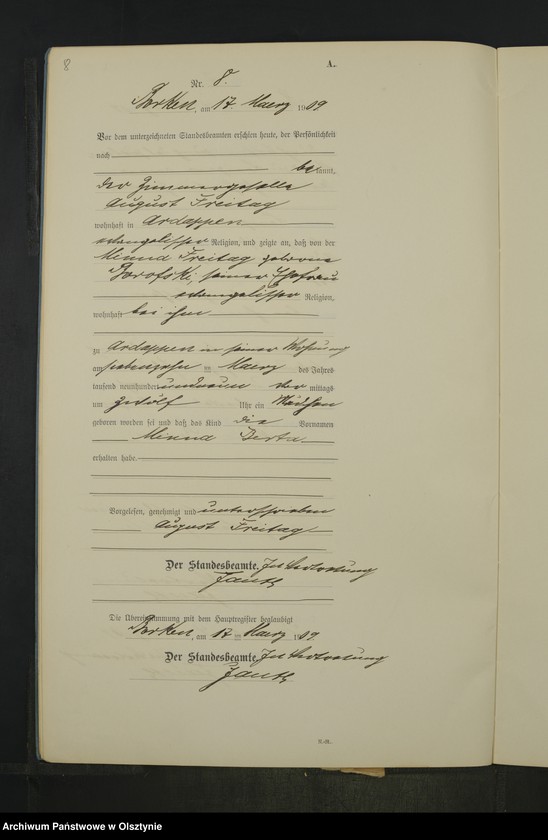 8
A.
Nr. 8.
Borken, am 17 Maerz 1909
Vor dem unterzeichneten Standesbeamten erschien heute, der Persönlichkeit
nach
bekannt,
der Zimmergeselle
August Freitag
wohnhaft in Ardappen
evangelischer Religion, und zeigte an, daß von der
Minna Freitag geborene
Borofski, seiner Ehefrau
evangelischer Religion,
wohnhaft bei ihm
zu Ardappen in seiner Wohnung
am siebenzehn ten Maerz des Jahres
tausend neunhundert undneun der mittags
um zwölf Uhr ein Mädchen
geboren worden sei und daß das Kind die Vornamen
Minna Berta
erhalten habe.
Vorgelesen, genehmigt und unterschrieben
August Freitag
Der Standesbeamte. In Vertretung
Die Übereinstimmung mit dem Hauptregister beglaubigt
Borken, am 17 ten Maerz 1909.
Der Standesbeamte. In Vertretung
Archiwum Państwowe w Olsztynie